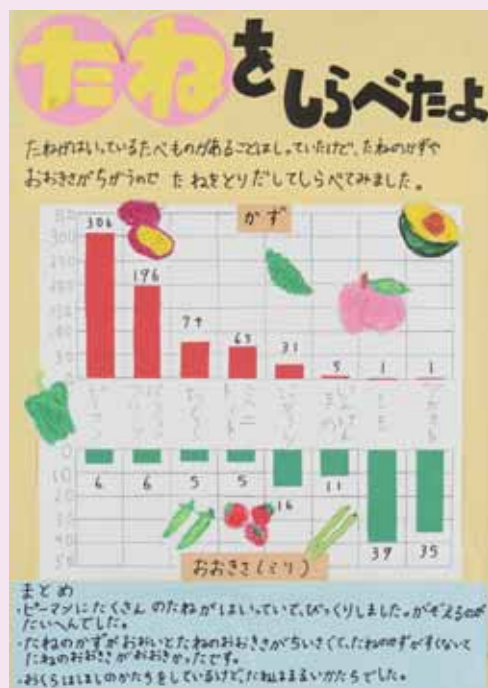 たねを
しらべたよ
たねがはいっているたべものがあることはしっていたけど、たねのかずや
おおきさがちがうので たねをとりだしてしらべてみました。
かず
306
196
77
65
31
5
1
1
ピーマン
おくら
ミニトマト
もも
アボカド
0
10
6
6
5
5
16
11
39
35
おおきさ(ミリ)
まとめ
・ピーマンにたくさんのたねがはいっていて、びっくりしました。かぞえるのが
たいへんでした。
・たねのかずがおおいとたねのおおきさがちいさくて、たねのかずがすくないと
たねのおおきさがおおきかったです。
・おくらはほしのかたちをしているけど、たねはまるいかたちでした。